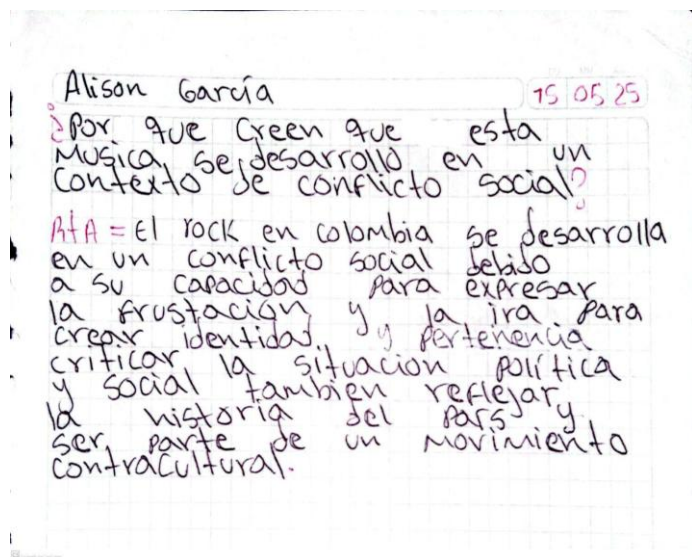 Alison García
15 05 25
¿Por que Creen que esta
Musica se desarrolló en un
contexto de conflicto social?
RtA = El rock en colombia se desarrolla
en un conflicto social debido
a su capacidad para expresar
la frustación y la ira para
crear identidad y pertenencia
criticar la situacion política
y social tambien reflejar
la historia del país y
ser parte de un movimiento
contracultural.